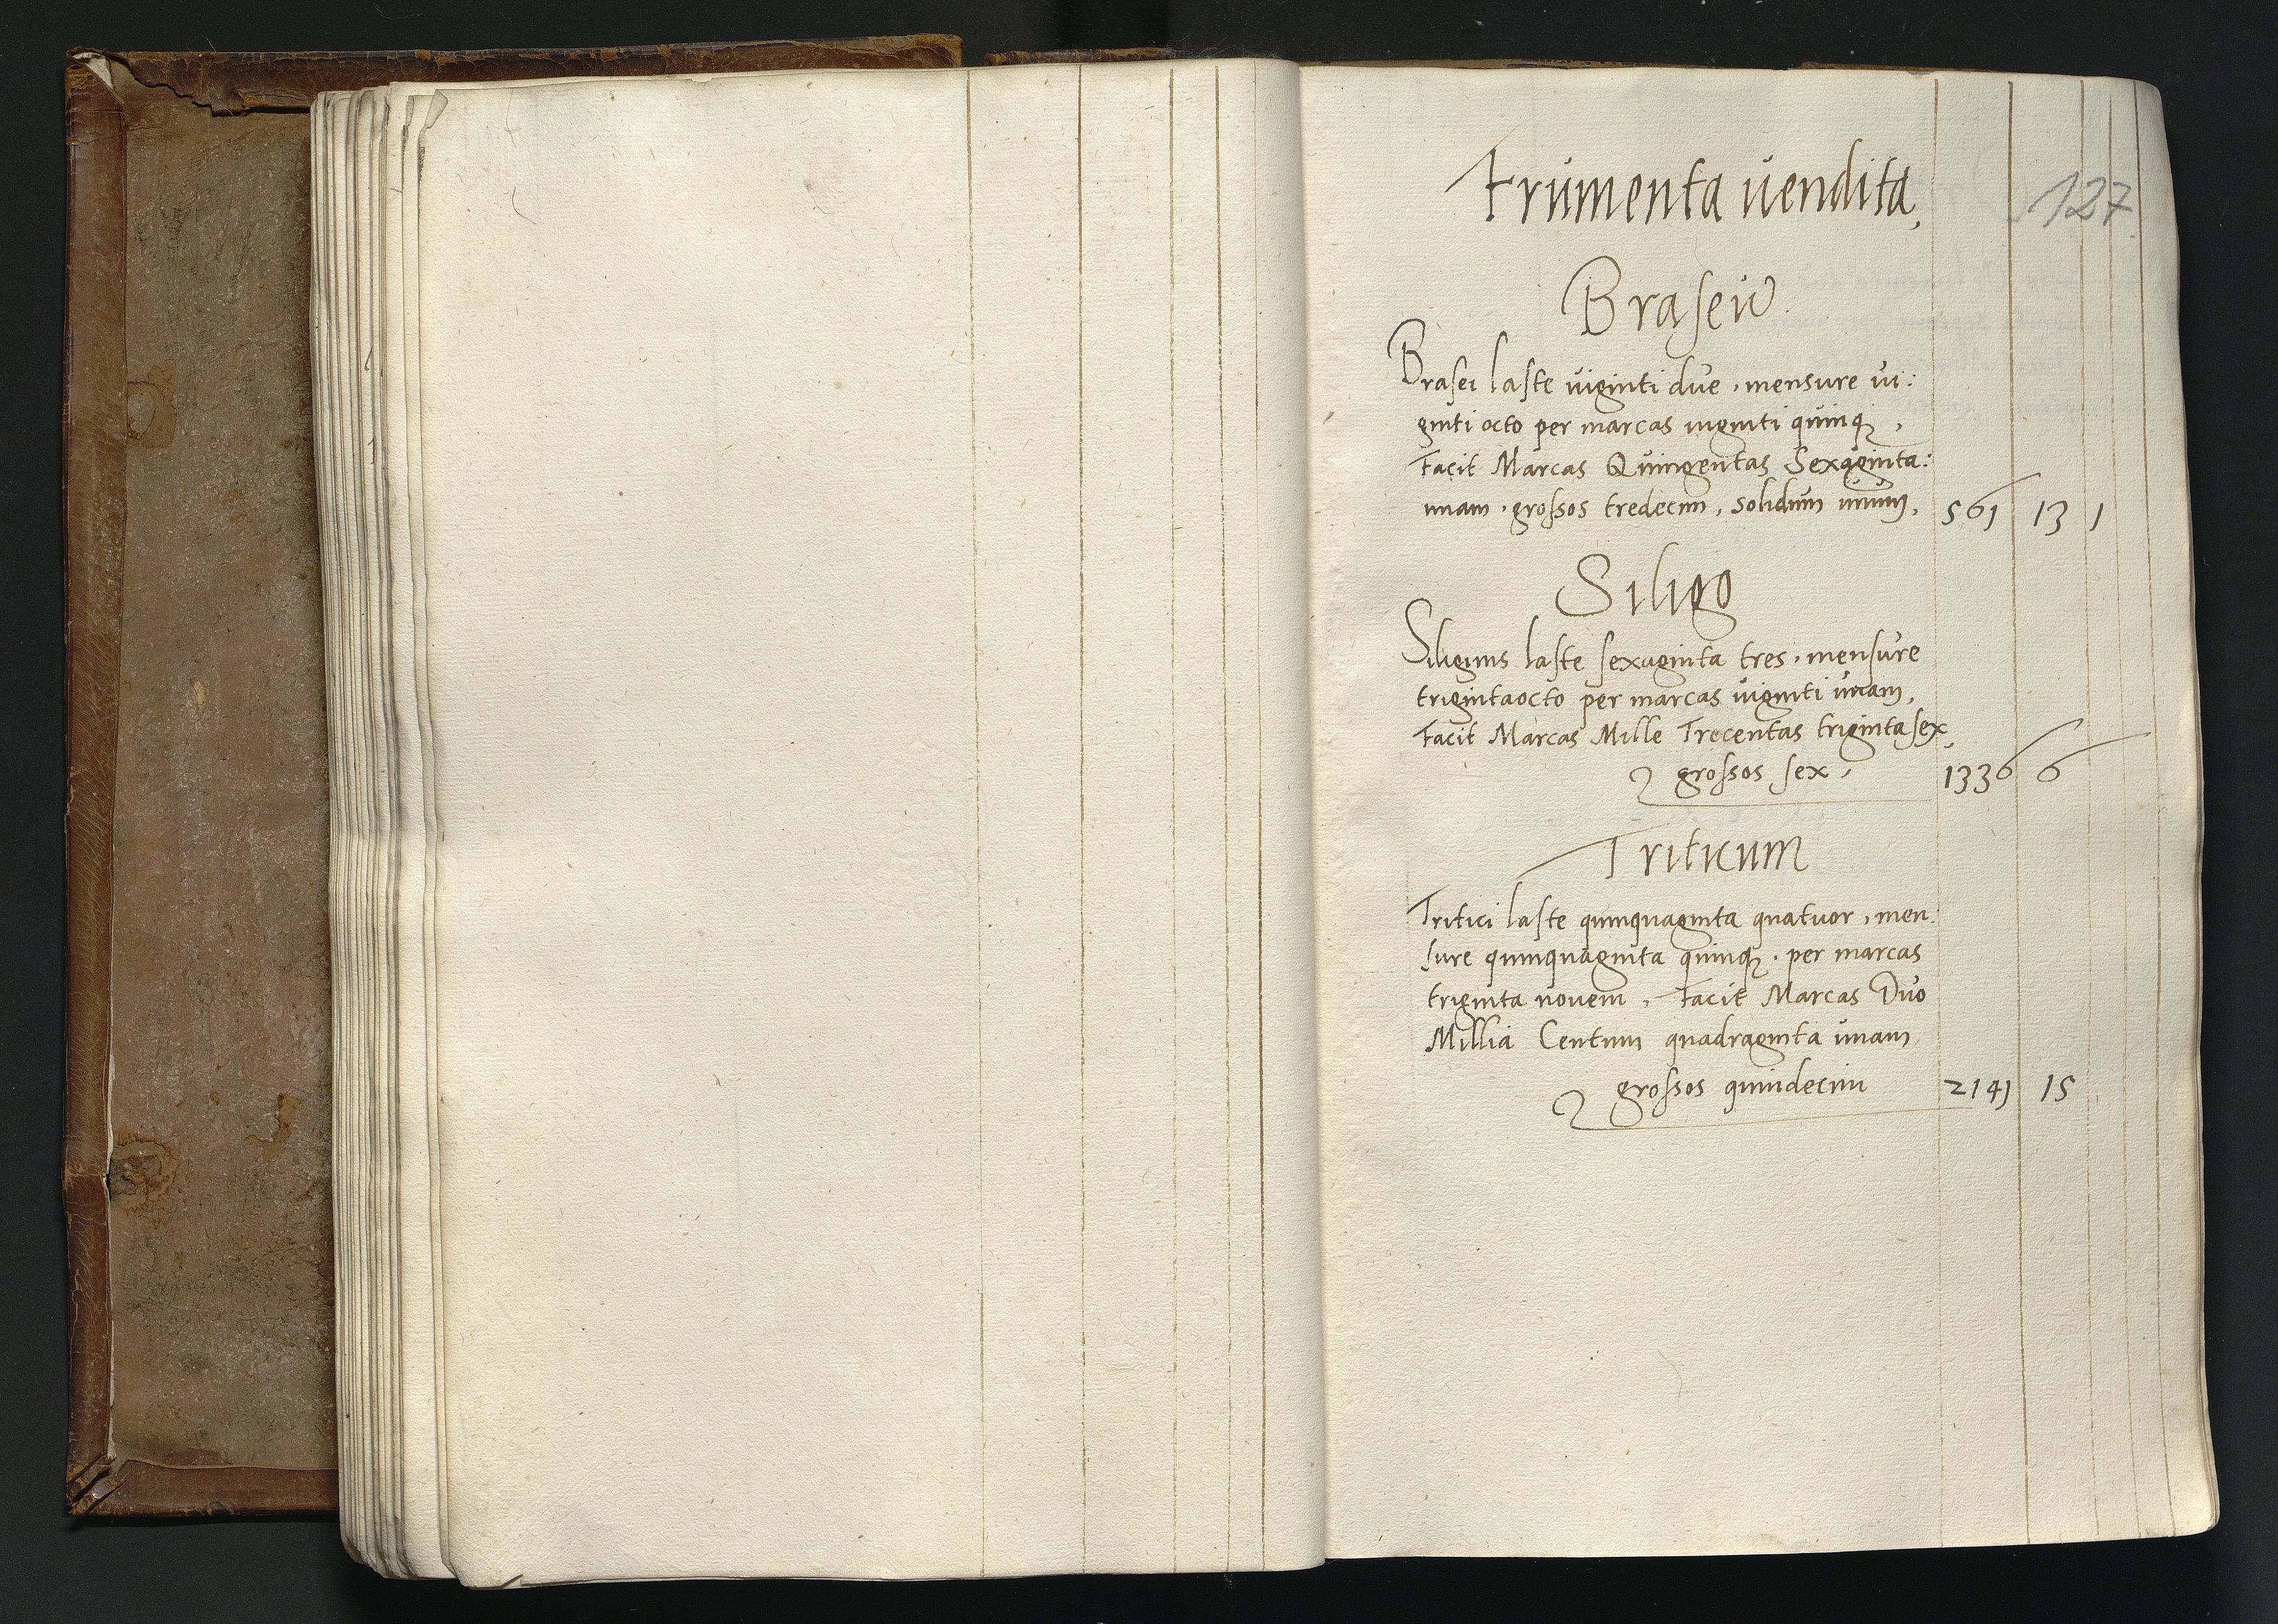 Frumenta uendita,
127
Braseu̅
Brasei laste uiginti due, mensure ui:
ginti octo per marcas uiginti quinq₃,
Facit Marcas Quingentas Sexaginta:
unam, grossos tredecim, solidum unum, 561 13 1
Siligo
Siliginis laste sexaginta tres, mensure
trigintaocto per marcas uiginti unam,
Facit Marcas Mille Trecentas trigintasex,
grossos sex, 1336 6
Triticum
Tritici laste quinquaginta quatuor, men:
sure quinquaginta quinq₃, per marcas
triginta novem, Facit Marcas Duo
Millia Centum quadraginta unam
grossos quindecim 2141 15